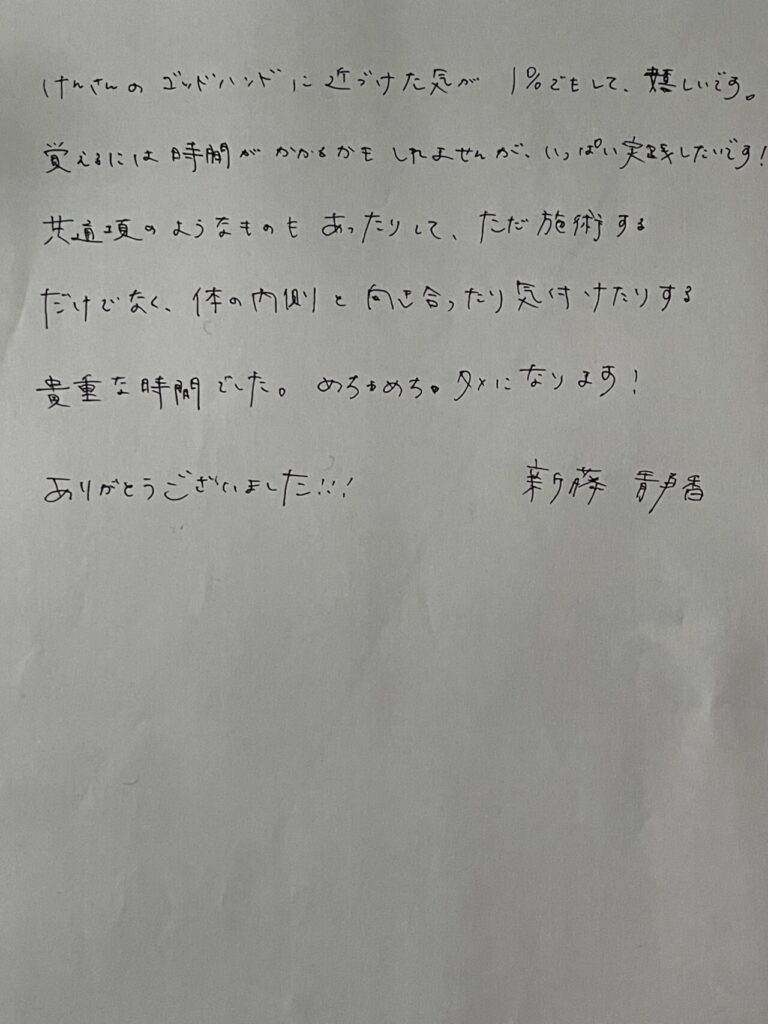 けんさんの ゴッドハンドに近づけた気が 1%でもして、嬉しいです。
覚えるには時間がかかるかもしれませんが、いっぱい実践したいです!
共通項のようなものもあったりして、ただ施術する
だけでなく、体の内側と向き合ったり気付けたりする
貴重な時間でした。めちゃめちゃタメになります!
ありがとうございました!!!
新藤 静香